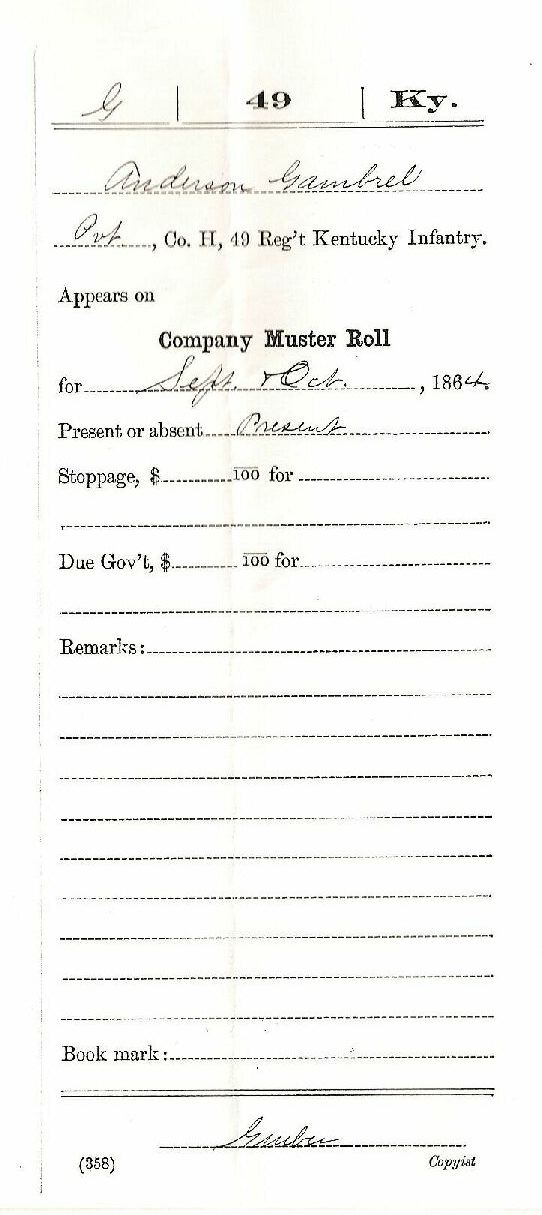 G | 49 | Ky.
Anderson Gambrel
Pvt, Co. H, 49 Reg't Kentucky Infantry.
Appears on
Company Muster Roll
for Sept. & Oct., 1864.
Present or absent Present
Stoppage, $ 100 for
Due Gov't, $ 100 for
Remarks:
Book mark:
(358) Copyist